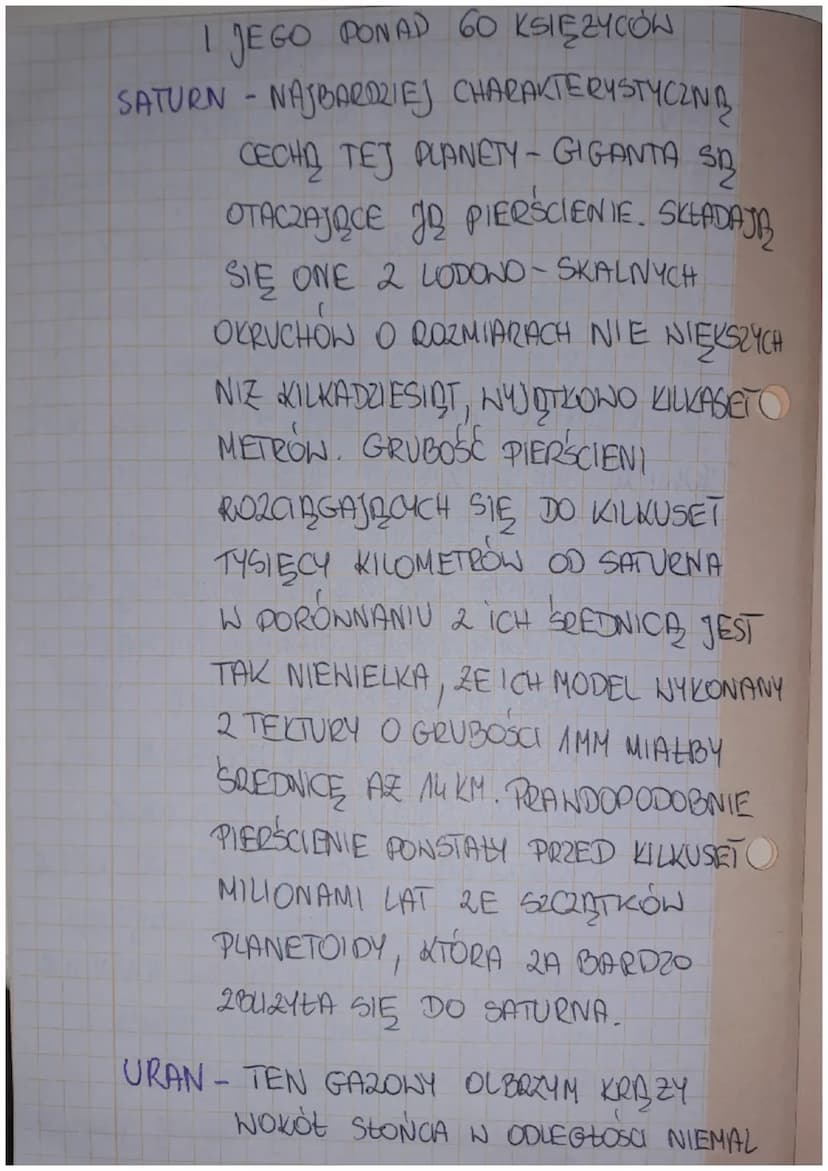 I JEGO PONAD 60 KSIĘŻYCÓW
SATURN - NAJBARDZIEJ CHARAKTERYSTYCZNĄ
CECHĄ TEJ PLANETY - GIGANTA SĄ
OTACZAJĄCE JĄ PIERŚCIENIE. SKŁADAJĄ
SIĘ ONE Z LODOWO - SKALNYCH
OKRUCHÓW O ROZMIARACH NIE WIĘKSZYCH
NIŻ KILKADZIESIĄT, WYJĄTKOWO KILKASET
METRÓW. GRUBOŚĆ PIERŚCIENI
ROZCIĄGAJĄCYCH SIĘ DO KILKUSET
TYSIĘCY KILOMETRÓW OD SATURNA
W PORÓWNANIU Z ICH ŚREDNICĄ JEST
TAK NIEWIELKA, ŻE ICH MODEL WYKONANY
Z TEKTURY O GRUBOŚCI 1MM MIAŁBY
ŚREDNICĘ AŻ 14 KM. PRAWDOPODOBNIE
PIERŚCIENIE POWSTAŁY PRZED KILKUSET
MILIONAMI LAT ZE SZCZĄTKÓW
PLANETOIDY, KTÓRA ZA BARDZO
ZBLIŻYŁA SIĘ DO SATURNA.
URAN - TEN GAZOWY OLBRZYM KRĄŻY
WOKÓŁ SŁOŃCA W ODLEGŁOŚCI NIEMAL